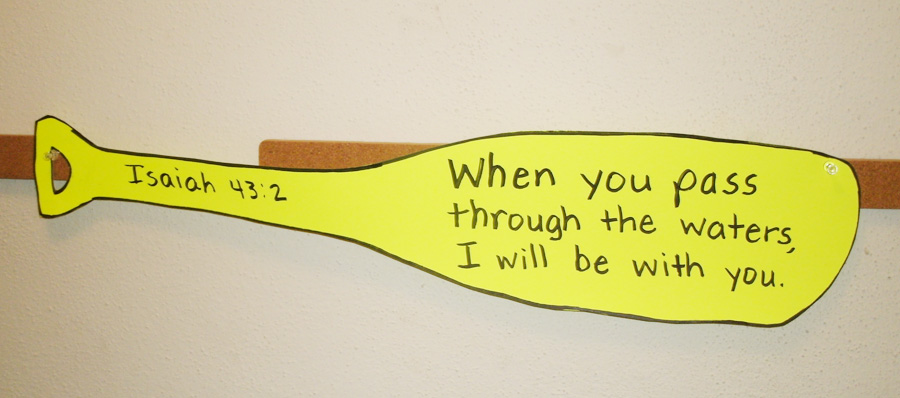 Isaiah 43:2
When you pass
through the waters,
I will be with you.